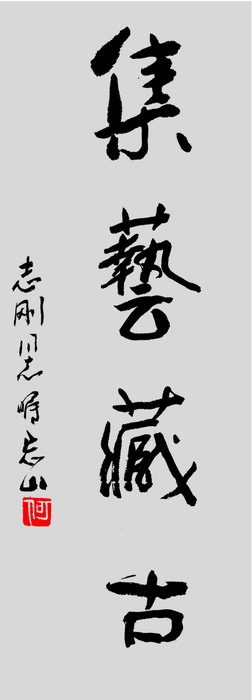 集藝藏古
志刚同志山
何